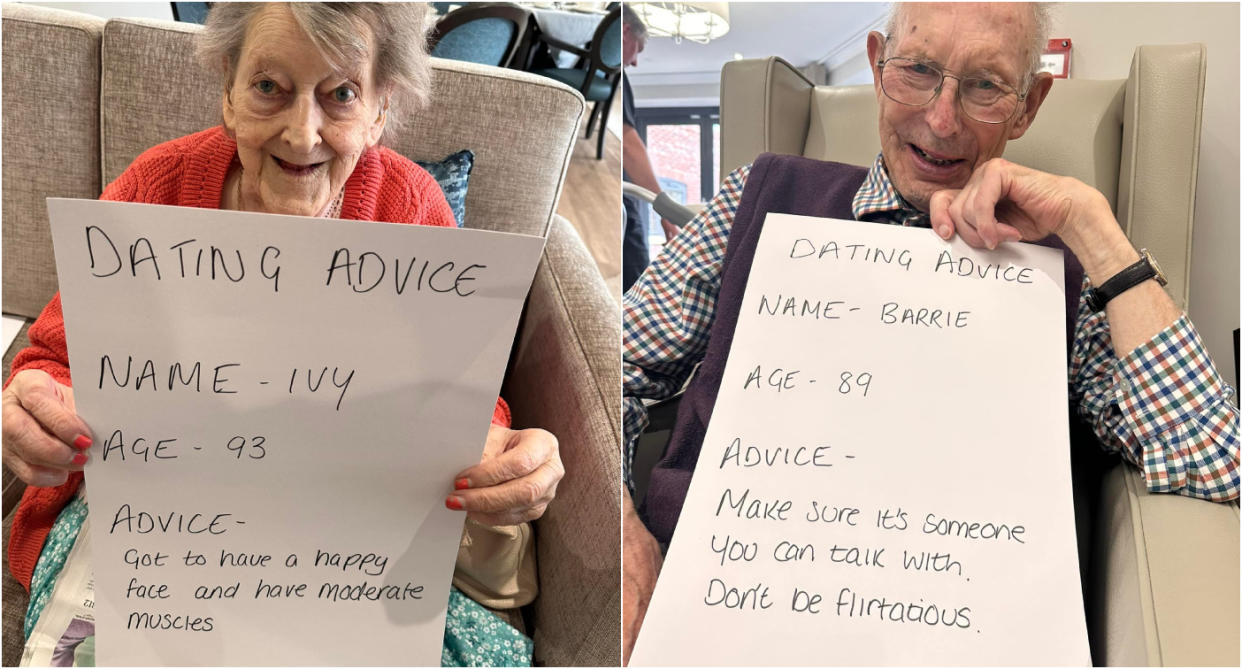 DATING ADVICE
NAME - IVY
AGE - 93
ADVICE-
Got to have a happy
face and have moderate
muscles
DATING ADVICE
NAME- BARRIE
AGE - 89
ADVICE-
Make sure it's someone
you can talk with.
Don't be flirtatious.